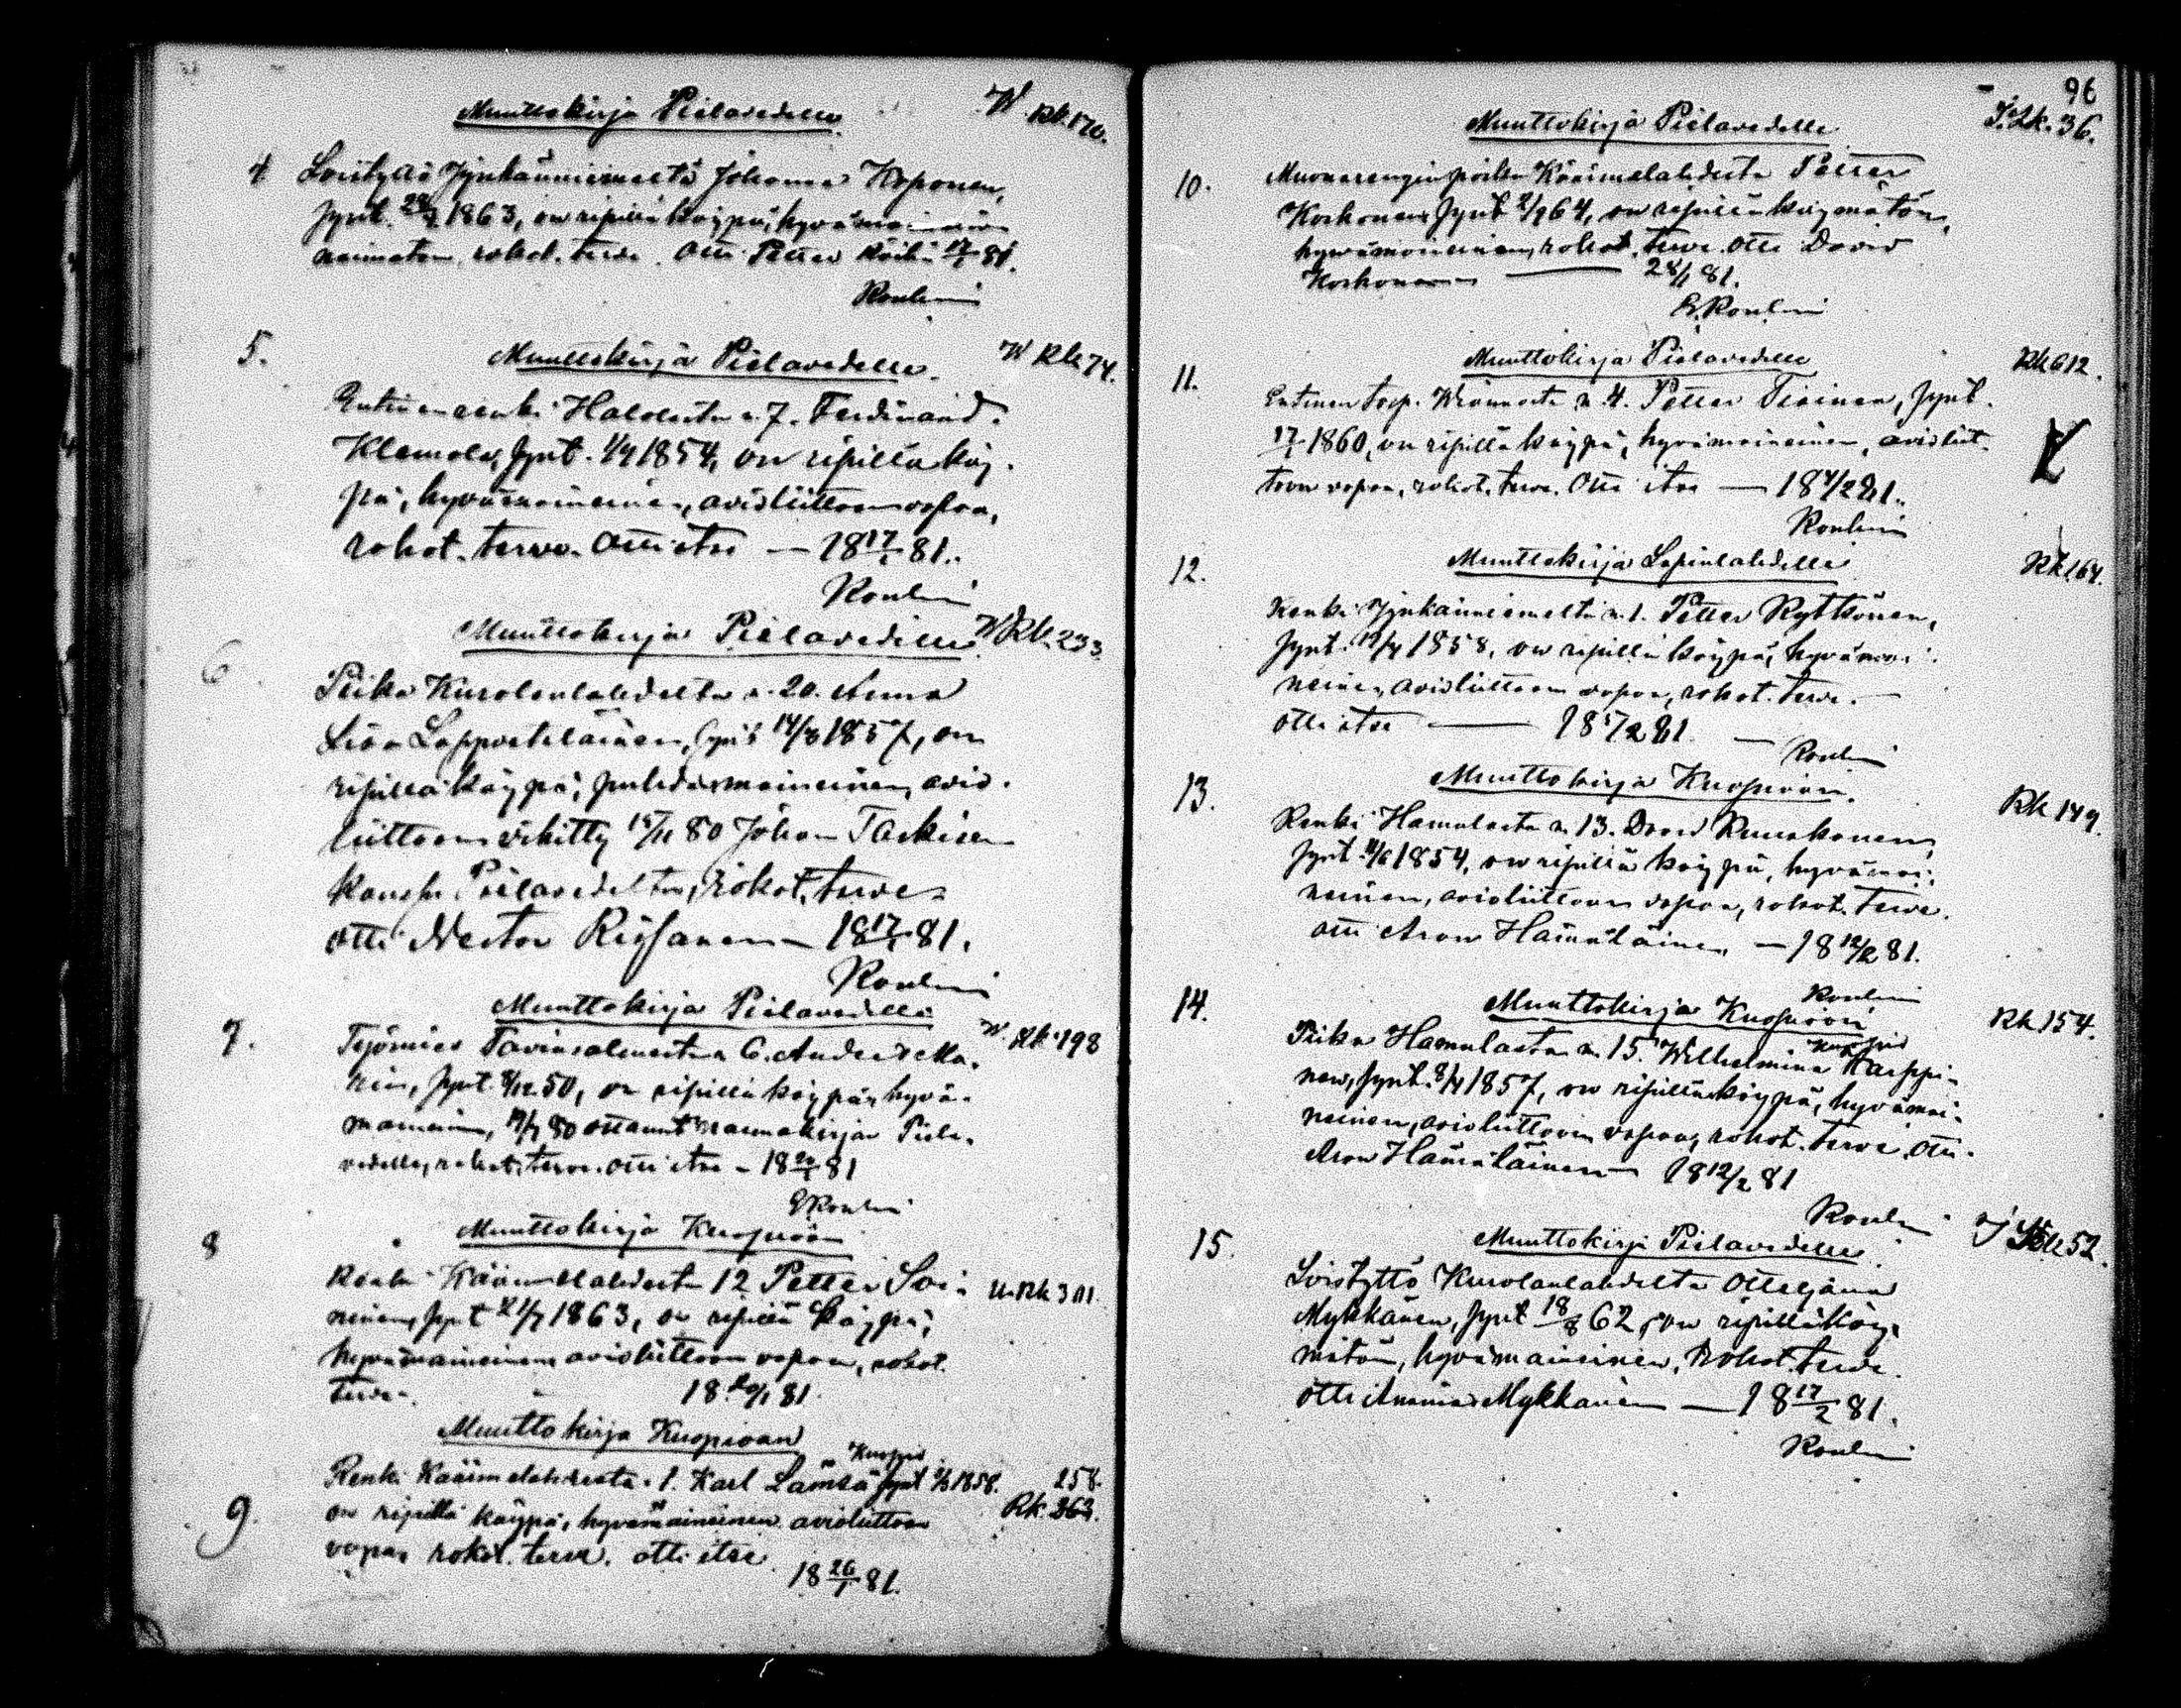 Muuttokirja Pielavedelle W Rk. 170.
4 Loistyttö Jynkänniemeltä Johanna Koponen,
synt. 1863, on ripillä käypä, hyvämaineinen
naimaton, rokot. terve. Otti Petter 17/1 81.
Roulini
5. Muuttokirja Pielavedelle. W Rk 74.
Entinen renki Halolasta n. 7. Ferdinand
Klemola, synt. 1/4 1854, on ripillä käy-
pä, hyvämaineinen, avioliittoon vapaa,
rokot. terve. Otti itse — 18 17/1 81.
Roulini
Muuttokirja Pielavedelle W Rk. 233
6 Piika Kurolanlahdelta n. 20. Anna
Liisa Lappveteläinen, synt 14/8 1857, on
ripillä käypä, puhdasmaineinen, avio-
liittoon vihitty 15/11 80 Johan Taskisen
kanssa Pielavedeltä, rokot. terve
otti Nestor Riissanen — 18 17/1 81.
Roulini
Muuttokirja Pielavedelle
7. Työmies Tavinsalmesta n 6. Anders Ma- W. Rk. 198
nin, synt. 8/12 50, on ripillä käypä, hyvä-
maineinen, 19/7 80 ottanut kirjan Piela-
vedelle, rokot. terve. otti itse – 18 20/1 81
E Roulini
Muuttokirja Kuopioon
8 Renki Käärmelahdesta 12 Petter Soi- U. Rk 301
ninen, synt 21/7 1863, on ripillä käypä,
hyvämaineinen avioliittoon vapaa, rokot.
terve. — 18 20/1 81.
Muuttokirja Kuopioon
Kuopio
Renki Käärmelahdesta 1. Karl Lämsä synt 2/3 1858. 258.
9. on ripillä käypä, hyvämaineinen avioliittoon Rk. 363.
vapaa rokot. terve. otti itse
18 26/1 81.
96
Muuttokirja Pielavedelle I. Lk. 36.
10. Muonarengin poika Käärmelahdesta Petter
Korhonen, synt 2/9 64, on ripillä käymätön,
hyvämaineinen, rokot. terve. Otti David
Korhonen — 28/1 81.
E. Roulini
Muuttokirja Pielavedelle Rk 612.
11. Entinen torp. Wäännasta n. 4. Petter Tiainen, synt.
1860, on ripillä käypä, hyvämaineinen, avioliit-
toon vapaa, rokot. terve. Otti itse — 18 4/2 81.
Roulini
12. Muuttokirja Lapinlahdelle Rk 164.
Renki Jynkänniemeltä n. 1. Petter Rytkönen,
synt. 19/4 1858, on ripillä käypä, hyvämai-
neinen, avioliittoon vapaa, rokot. terve. —
otti itse — 18 5/2 81. — Roulini
13. Muuttokirja Kuopioon. Rk 149.
Renki Hamulasta n. 13. David Ruuskanen,
synt. 11/6 1854, on ripillä käypä, hyvämai-
neinen, avioliittoon vapaa, rokot. terve.
otti Aron Hämäläinen. — 18 12/2 81.
Roulini
14. Muuttokirja Kuopioon Rk 154.
Kuopio
Piika Hamulasta n. 15. Wilhelmina Karppi-
nen, synt. 8/4 1857, on ripillä käypä, hyvämai-
neinen, avioliittoon vapaa, rokot. terve. Otti
Aron Hämäläinen — 18 12/2 81
Roulini
15. Muuttokirja Pielavedelle 52.
Loistyttö Kurolanlahdelta Otteljaana
Mykkänen, synt 18/8 62, on ripillä käy-
mätön, hyvämaineinen, Rokot. terve.
otti Anna Mykkänen — 18 17/2 81.
Roulini